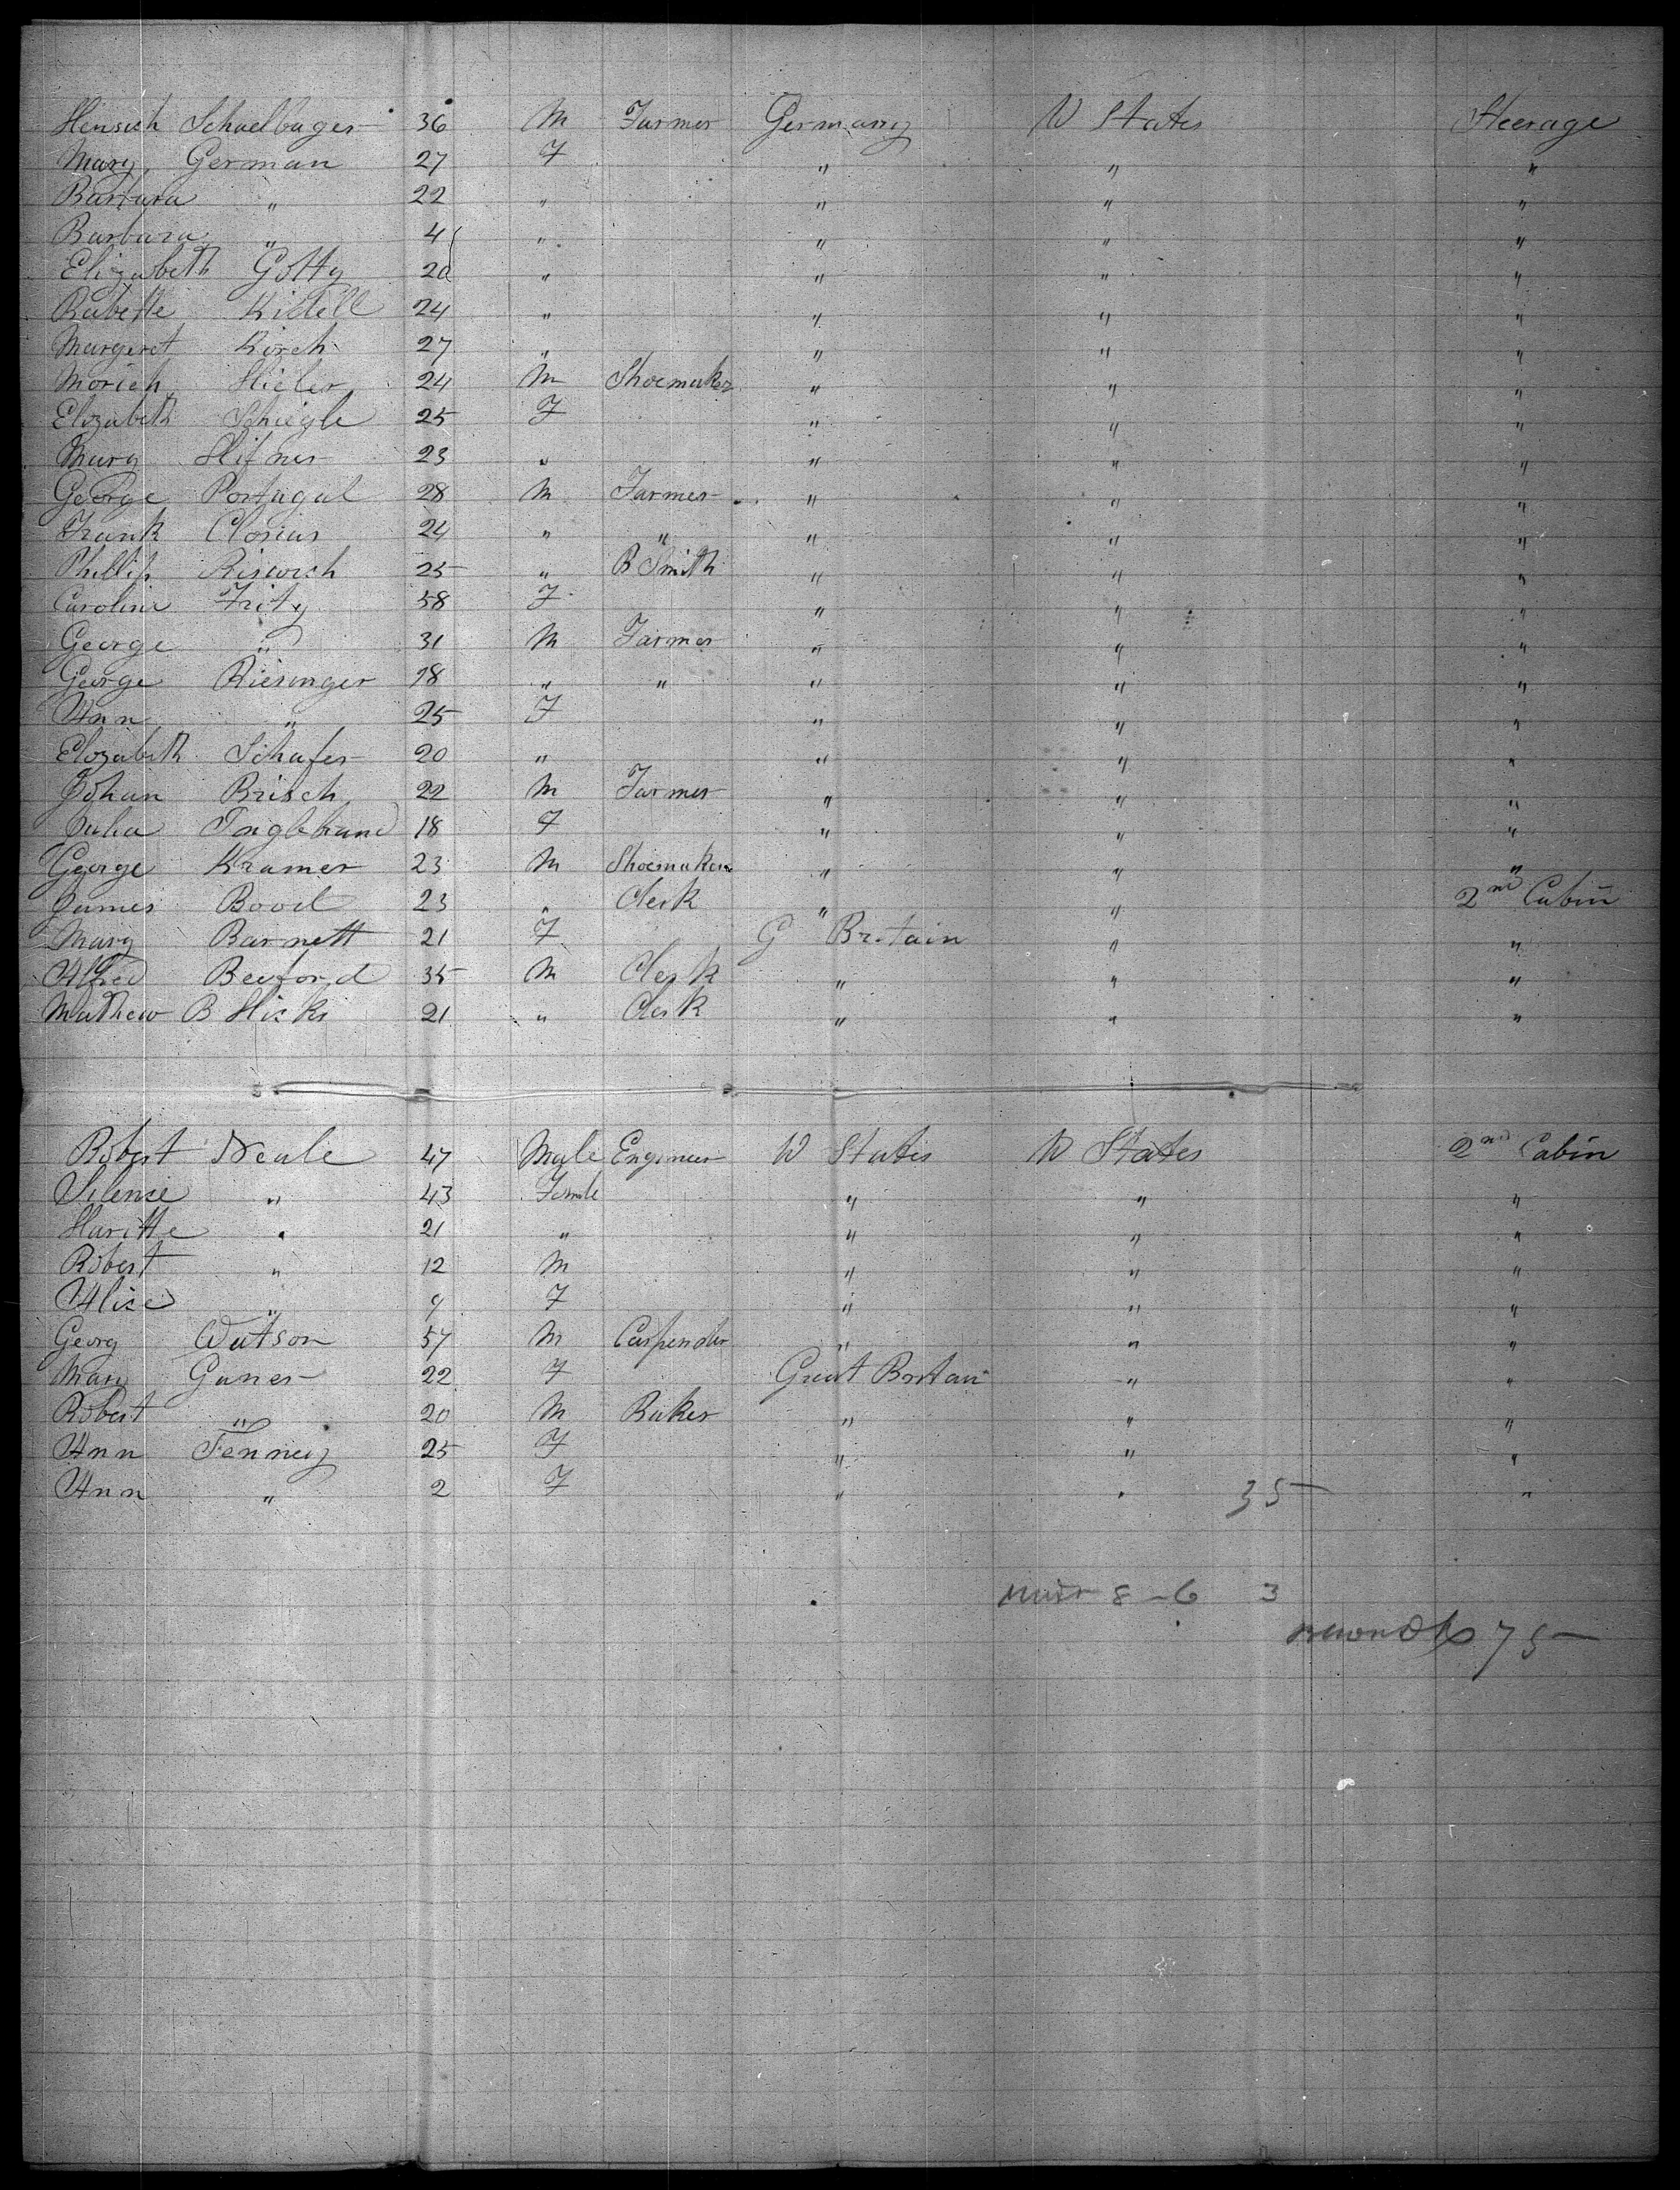 Heinrich Schaelbager 36 M Farmer Germany U States Steerage
Mary German 27 F " " "
Barbara " 22 " " " "
Barbara " 4 " " " "
Elizabeth Gotty 20 " " " "
Babette Kidell 24 " " " "
Margeret Kirch 27 " " " "
Morich Hieler 24 M Shoemaker " " "
Elizabeth Schiegle 25 F " " "
Mary Hifner 23 " " " "
George Portugal 28 M Farmer " " "
Frank Clorius 24 " " " " "
Phillip Riswich 25 " B Smith " " "
Caroline Frity 58 F " " "
George " 31 M Farmer " " "
George Riesinger 18 " " " " "
Ann " 25 F " " "
Elizabeth Schafer 20 " " " "
Johan Brisch 22 M Farmer " " "
Julia Inglebrand 18 F " " "
George Kramer 23 M Shoemaker " " "
James Bood 23 " Clerk " " 2nd Cabin
Mary Barnett 21 F G Britain " "
Alfred Bedford 35 M Clerk " " "
Mathew B Hicks 21 " Clerk " " "
Robert Neale 47 Male Engineer U States U States 2nd Cabin
Silense " 43 Female " " "
Haritte " 21 " " " "
Robert " 12 M " " "
Alice " 9 F " " "
Georg Watson 57 M Carpender " " "
Mary Ganer 22 F Great Britain " "
Robert " 20 M Baker " " "
Ann Fenney 25 F " " "
Ann " 2 F " " "
35
8 - 6 3
75